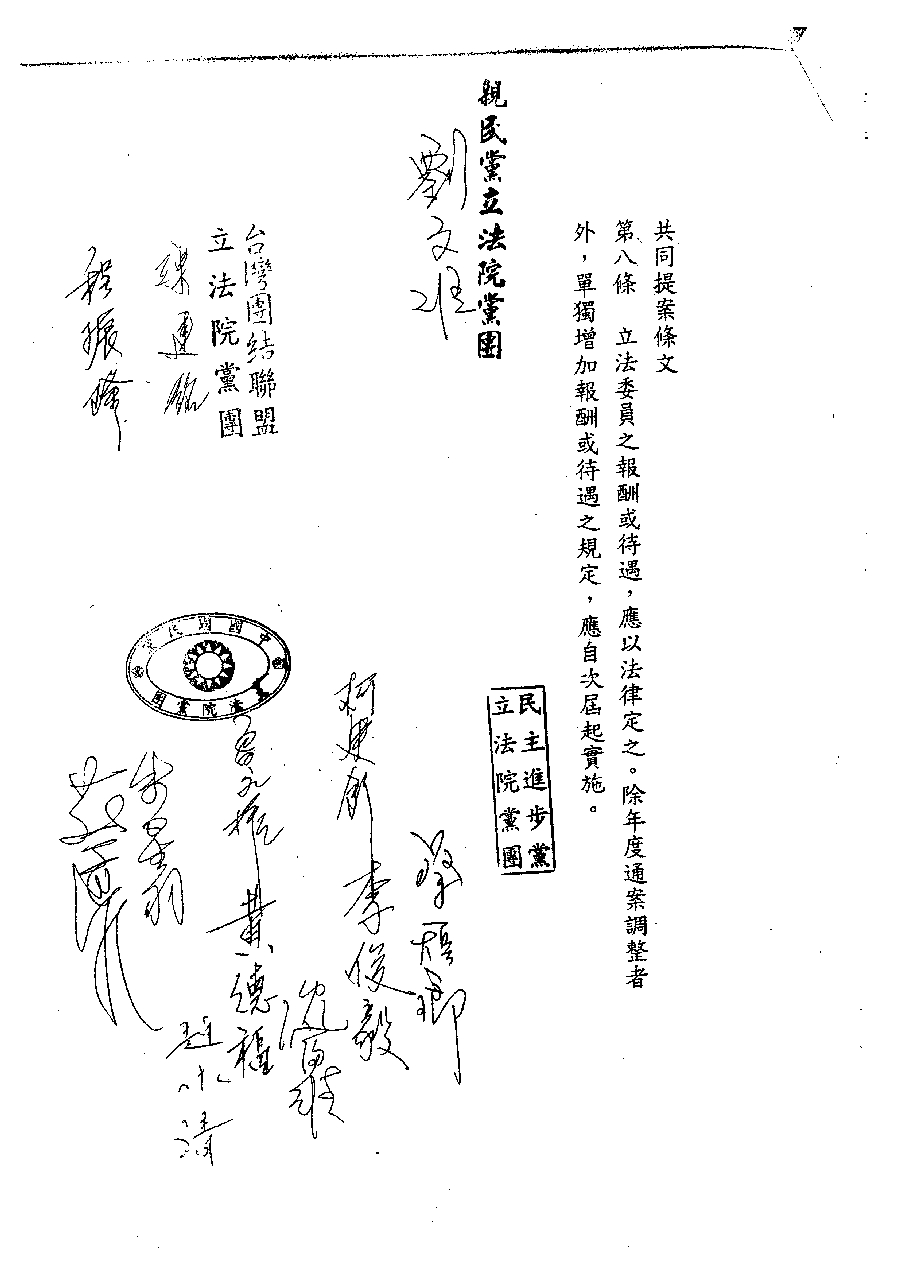 共同提案條文
第八條　立法委員之報酬或待遇，應以法律定之。除年度通案調整者
外，單獨增加報酬或待遇之規定，應自次屆起實施。
民主進步黨
立法院黨團
親民黨立法院黨團
劉文雄
台灣團結聯盟
立法院黨團
程振隆
中國國民黨
立法院黨團
柯建銘
李俊毅
黃德福
趙永清